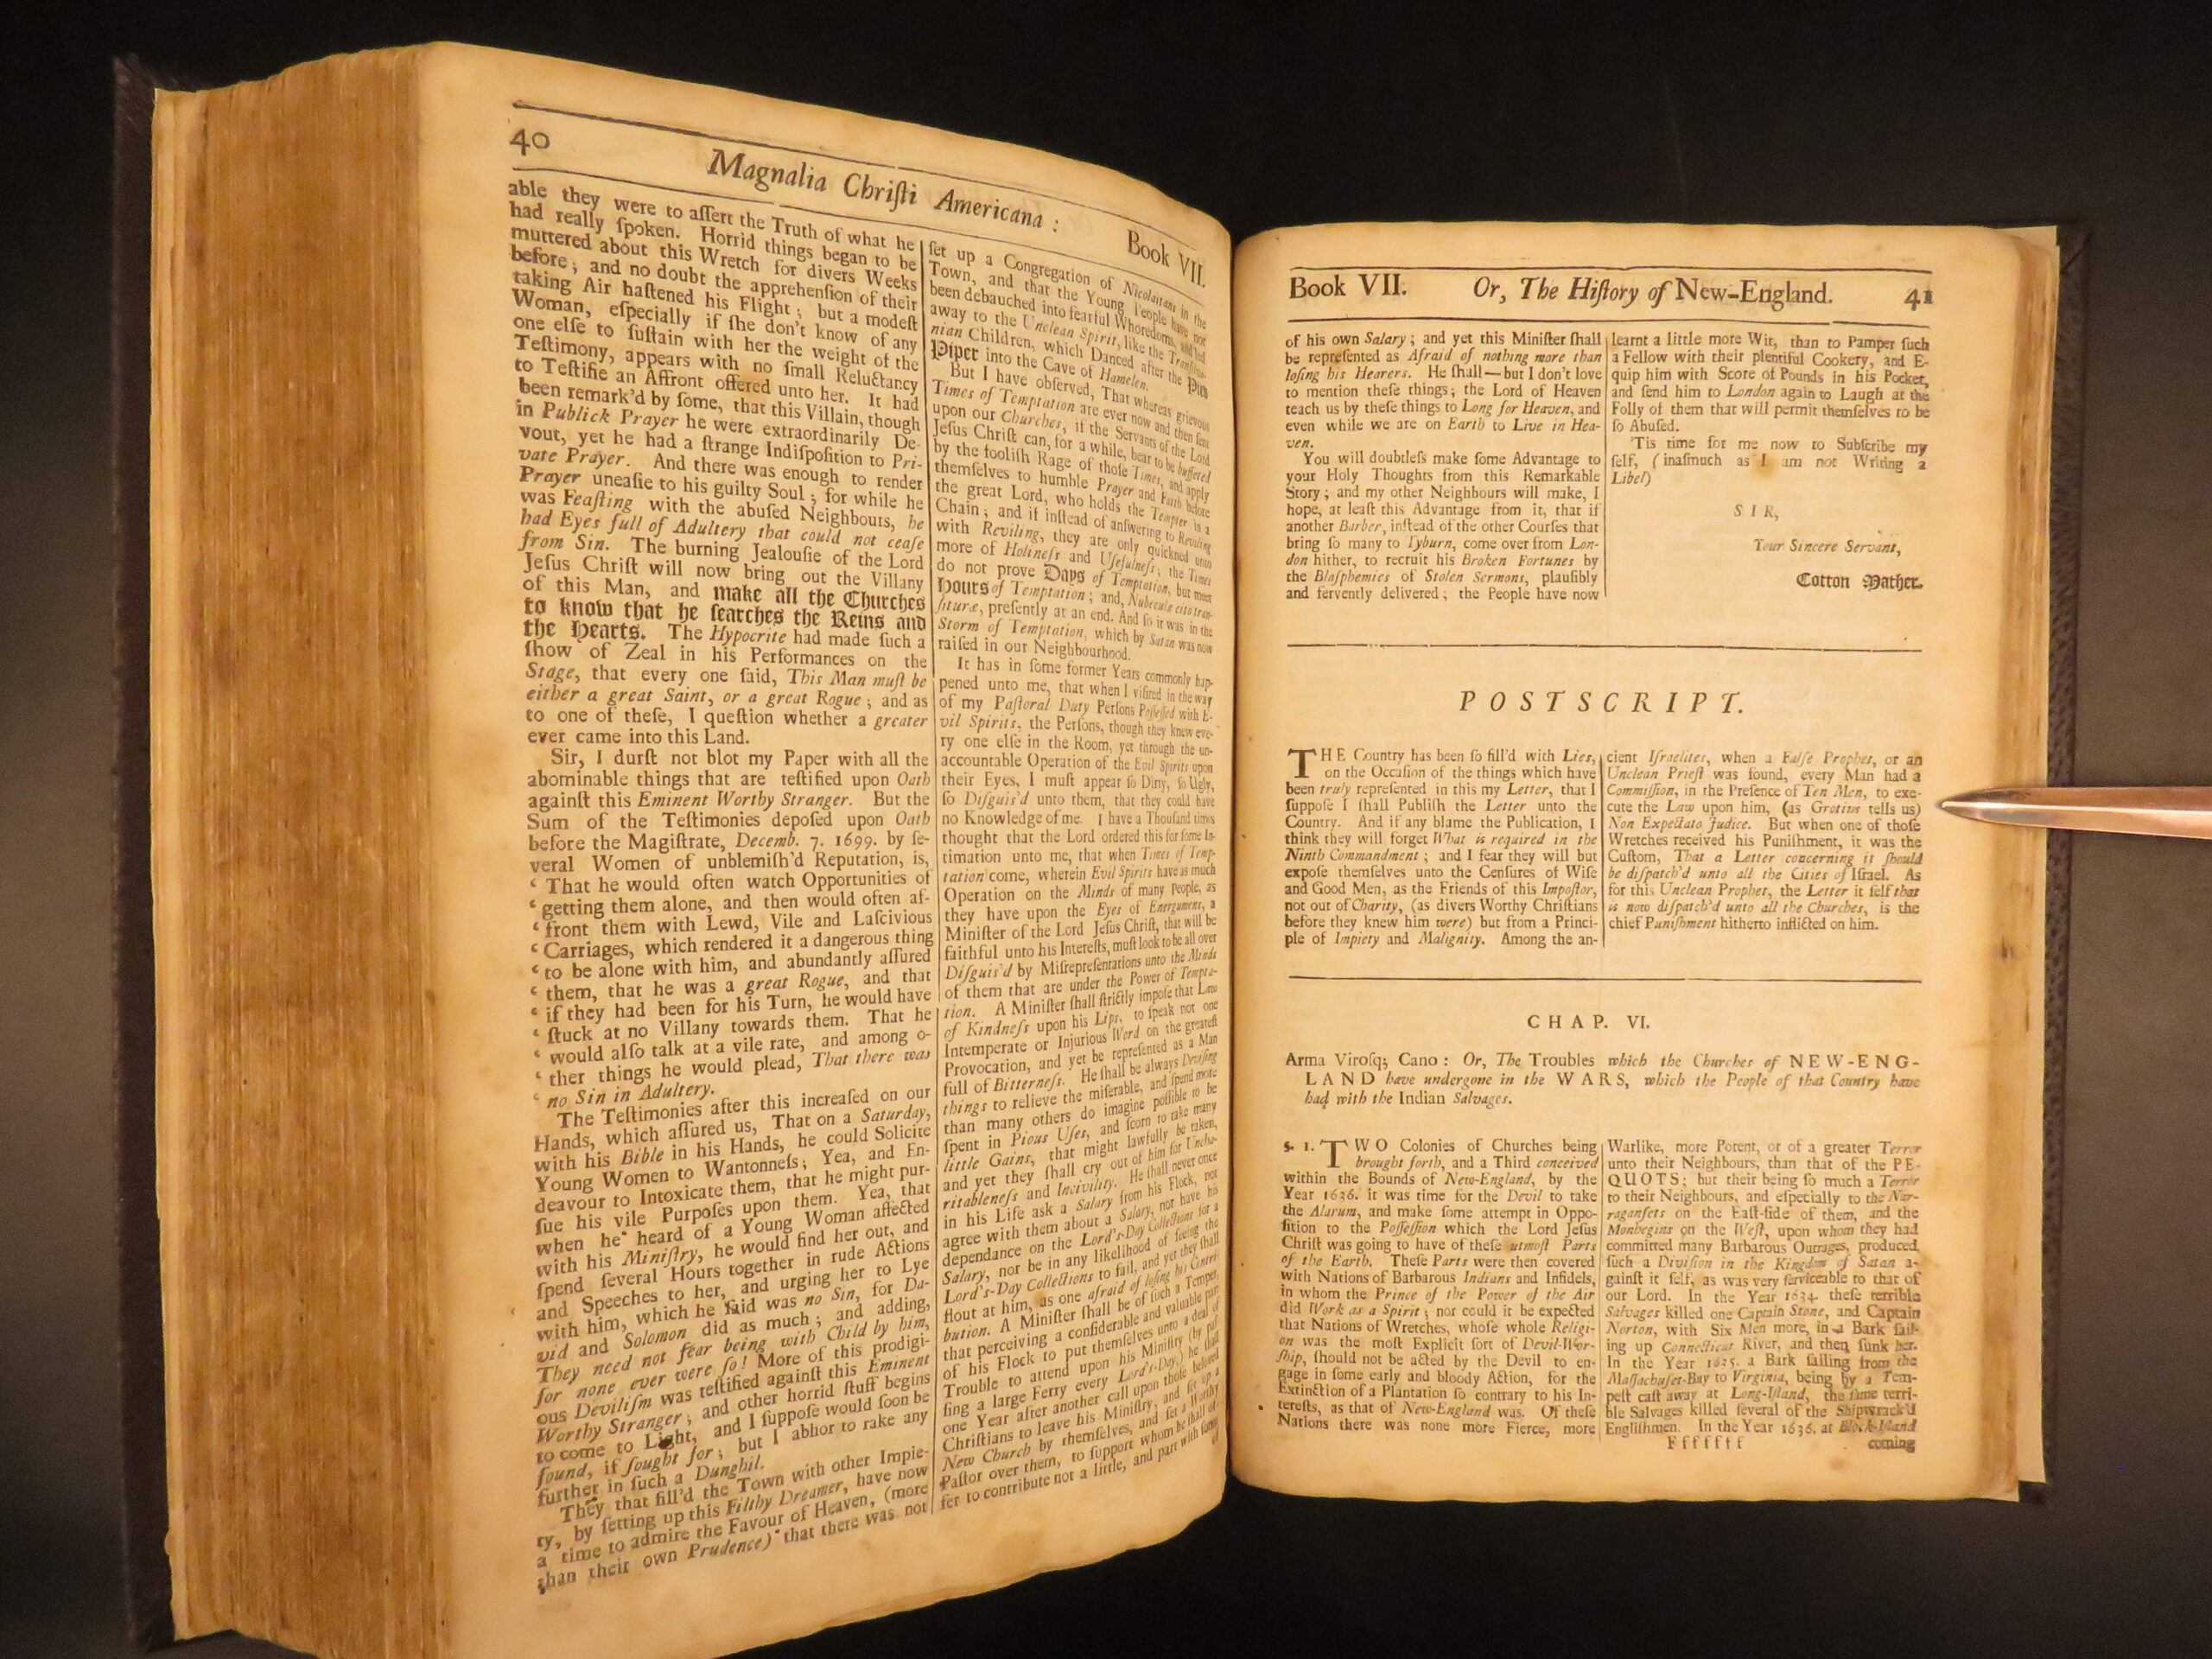 40
Magnalia Chriſti Americana :
Book VII.
able they were to aſſert the Truth of what he
had really ſpoken. Horrid things began to be
muttered about this Wretch for divers Weeks
before; and no doubt the apprehenſion of their
taking Air haſtened his Flight; but a modeſt
Woman, eſpecially if ſhe don't know of any
one elſe to ſuſtain with her the weight of the
Teſtimony, appears with no ſmall Reluctancy
to Teſtifie an Affront offered unto her. It had
been remark'd by ſome, that this Villain, though
in Publick Prayer he were extraordinarily De-
vout, yet he had a ſtrange Indiſpoſition to Pri-
vate Prayer. And there was enough to render
Prayer uneaſie to his guilty Soul; for while he
was Feaſting with the abuſed Neighbours, he
had Eyes full of Adultery that could not ceaſe
from Sin. The burning Jealouſie of the Lord
Jeſus Chriſt will now bring out the Villany
of this Man, and make all the Churches
to know that he ſearches the Reins and
the Hearts. The Hypocrite had made ſuch a
ſhow of Zeal in his Performances on the
Stage, that every one ſaid, This Man muſt be
either a great Saint, or a great Rogue; and as
to one of theſe, I queſtion whether a greater
ever came into this Land.
Sir, I durſt not blot my Paper with all the
abominable things that are teſtified upon Oath
againſt this Eminent Worthy Stranger. But the
Sum of the Teſtimonies depoſed upon Oath
before the Magiſtrate, Decemb. 7. 1699. by ſe-
veral Women of unblemiſh'd Reputation, is,
‘ That he would often watch Opportunities of
‘ getting them alone, and then would often af-
‘ front them with Lewd, Vile and Laſcivious
‘ Carriages, which rendered it a dangerous thing
‘ to be alone with him, and abundantly aſſured
‘ them, that he was a great Rogue, and that
‘ if they had been for his Turn, he would have
‘ ſtuck at no Villany towards them. That he
‘ would alſo talk at a vile rate, and among o-
‘ ther things he would plead, That there was
‘ no Sin in Adultery.
The Teſtimonies after this increaſed on our
Hands, which aſſured us, That on a Saturday,
with his Bible in his Hands, he could Solicite
Young Women to Wantonneſs; Yea, and En-
deavour to Intoxicate them, that he might pur-
ſue his vile Purpoſes upon them. Yea, that
when he heard of a Young Woman affected
with his Miniſtry, he would find her out, and
ſpend ſeveral Hours together in rude Actions
and Speeches to her, and urging her to Lye
with him, which he ſaid was no Sin, for Da-
vid and Solomon did as much; and adding,
They need not fear being with Child by him,
for none ever were ſo! More of this prodigi-
ous Deviliſm was teſtified againſt this Eminent
Worthy Stranger; and other horrid ſtuff begins
to come to Light, and I ſuppoſe would ſoon be
found, if ſought for; but I abhor to rake any
further in ſuch a Dunghil.
They that fill'd the Town with other Impie-
ty, by ſetting up this Filthy Dreamer, have now
a time to admire the Favour of Heaven, (more
than their own Prudence) that there was not
ſet up a Congregation of Nicolaitans in the
Town, and that the Young People have not
been debauched into fearful Whoredoms, and led
away to the Unclean Spirit, like the Tranſilva-
nian Children, which Danced after the Pied
Piper into the Cave of Hamelen.
But I have obſerved, That whereas grievous
Times of Temptation are ever now and then ſent
upon our Churches, if the Servants of the Lord
Jeſus Chriſt can, for a while, bear to be buffeted
by the fooliſh Rage of thoſe Times, and apply
themſelves to humble Prayer and Faith before
the great Lord, who holds the Tempter in a
Chain; and if inſtead of anſwering to Reviling
with Reviling, they are only quickned unto
more of Holineſs and Uſefulneſs; the Times
do not prove Days of Temptation, but meer
Hours of Temptation; and, Nubecula cito tran-
ſituræ, preſently at an end. And ſo it was in the
Storm of Temptation, which by Satan was now
raiſed in our Neighbourhood.
It has in ſome former Years commonly hap-
pened unto me, that when I viſited in the way
of my Paſtoral Duty Perſons Poſſeſſed with E-
vil Spirits, the Perſons, though they knew eve-
ry one elſe in the Room, yet through the un-
accountable Operation of the Evil Spirits upon
their Eyes, I muſt appear ſo Dirty, ſo Ugly,
ſo Diſguis'd unto them, that they could have
no Knowledge of me. I have a Thouſand times
thought that the Lord ordered this for ſome In-
timation unto me, that when Times of Temp-
tation come, wherein Evil Spirits have as much
Operation on the Minds of many People, as
they have upon the Eyes of Energumens, a
Miniſter of the Lord Jeſus Chriſt, that will be
faithful unto his Intereſts, muſt look to be all over
Diſguis'd by Miſrepreſentations unto the Minds
of them that are under the Power of Tempta-
tion. A Miniſter ſhall ſtrictly impoſe that Law
of Kindneſs upon his Lips, to ſpeak not one
Intemperate or Injurious Word on the greateſt
Provocation, and yet be repreſented as a Man
full of Bitterneſs. He ſhall be always Deviſing
things to relieve the miſerable, and ſpend more
than many others do imagine poſſible to be
ſpent in Pious Uſes, and ſcorn to take many
little Gains, that might lawfully be taken,
and yet they ſhall cry out of him for Uncha-
ritableneſs and Incivility. He ſhall never once
in his Life ask a Salary from his Flock, not
agree with them about a Salary, nor have his
dependance on the Lord's-Day Collections for a
Salary, nor be in any likelihood of ſeeing the
Lord's-Day Collections to fail, and yet they ſhall
flout at him, as one afraid of loſing his Contri-
bution. A Miniſter ſhall be of ſuch a Temper,
that perceiving a conſiderable and valuable part
of his Flock to put themſelves unto a deal of
Trouble to attend upon his Miniſtry (by paſ-
ſing a large Ferry every Lord's-Day,) he ſhall
one Year after another call upon thoſe beloved
Chriſtians to leave his Miniſtry, and ſet up a
New Church by themſelves, and ſet a Worthy
Paſtor over them, to ſupport whom he ſhall of-
fer to contribute not a little, and part with ſome
of
Book VII. Or, The Hiſtory of New-England. 41
of his own Salary; and yet this Miniſter ſhall
be repreſented as Afraid of nothing more than
loſing his Hearers. He ſhall — but I don't love
to mention theſe things; the Lord of Heaven
teach us by theſe things to Long for Heaven, and
even while we are on Earth to Live in Hea-
ven.
You will doubtleſs make ſome Advantage to
your Holy Thoughts from this Remarkable
Story; and my other Neighbours will make, I
hope, at leaſt this Advantage from it, that if
another Barber, inſtead of the other Courſes that
bring ſo many to Tyburn, come over from Lon-
don hither, to recruit his Broken Fortunes by
the Blaſphemies of Stolen Sermons, plauſibly
and fervently delivered; the People have now
learnt a little more Wit, than to Pamper ſuch
a Fellow with their plentiful Cookery, and E-
quip him with Score of Pounds in his Pocket,
and ſend him to London again to Laugh at the
Folly of them that will permit themſelves to be
ſo Abuſed.
'Tis time for me now to Subſcribe my
ſelf, (inaſmuch as I am not Writing a
Libel)
SIR,
Your Sincere Servant,
Cotton Mather.
POSTSCRIPT.
THE Country has been ſo fill'd with Lies,
on the Occaſion of the things which have
been truly repreſented in this my Letter, that I
ſuppoſe I ſhall Publiſh the Letter unto the
Country. And if any blame the Publication, I
think they will forget What is required in the
Ninth Commandment; and I fear they will but
expoſe themſelves unto the Cenſures of Wiſe
and Good Men, as the Friends of this Impoſtor,
not out of Charity, (as divers Worthy Chriſtians
before they knew him were) but from a Princi-
ple of Impiety and Malignity. Among the an-
cient Iſraelites, when a Falſe Prophet, or an
Unclean Prieſt was found, every Man had a
Commiſſion, in the Preſence of Ten Men, to exe-
cute the Law upon him, (as Grotius tells us)
Non Expectato Judice. But when one of thoſe
Wretches received his Puniſhment, it was the
Cuſtom, That a Letter concerning it ſhould
be diſpatch'd unto all the Cities of Iſrael. As
for this Unclean Prophet, the Letter it ſelf that
is now diſpatch'd unto all the Churches, is the
chief Puniſhment hitherto inflicted on him.
CHAP. VI.
Arma Viroſq; Cano : Or, The Troubles which the Churches of NEW-ENG-
LAND have undergone in the WARS, which the People of that Country have
had with the Indian Salvages.
§. 1. TWO Colonies of Churches being
brought forth, and a Third conceived
within the Bounds of New-England, by the
Year 1636. it was time for the Devil to take
the Alarum, and make ſome attempt in Oppo-
ſition to the Poſſeſſion which the Lord Jeſus
Chriſt was going to have of theſe utmoſt Parts
of the Earth. Theſe Parts were then covered
with Nations of Barbarous Indians and Infidels,
in whom the Prince of the Power of the Air
did Work as a Spirit; nor could it be expected
that Nations of Wretches, whoſe whole Religi-
on was the moſt Explicit ſort of Devil-Wor-
ſhip, ſhould not be acted by the Devil to en-
gage in ſome early and bloody Action, for the
Extinction of a Plantation ſo contrary to his In-
tereſts, as that of New-England was. Of theſe
Nations there was none more Fierce, more
Warlike, more Potent, or of a greater Terror
unto their Neighbours, than that of the PE-
QUOTS; but their being ſo much a Terror
to their Neighbours, and eſpecially to the Nar-
raganſets on the Eaſt-ſide of them, and the
Monhegins on the Weſt, upon whom they had
committed many Barbarous Outrages, produced
ſuch a Diviſion in the Kingdom of Satan a-
gainſt it ſelf, as was very ſerviceable to that of
our Lord. In the Year 1634. theſe terrible
Salvages killed one Captain Stone, and Captain
Norton, with Six Men more, in a Bark ſail-
ing up Connecticut River, and then ſunk her.
In the Year 1635. a Bark ſailing from the
Maſſachuſet-Bay to Virginia, being by a Tem-
peſt caſt away at Long-Iſland, the ſame terri-
ble Salvages killed ſeveral of the Shipwrack'd
Engliſhmen. In the Year 1636. at Block-Iſland
Ffffff
coming